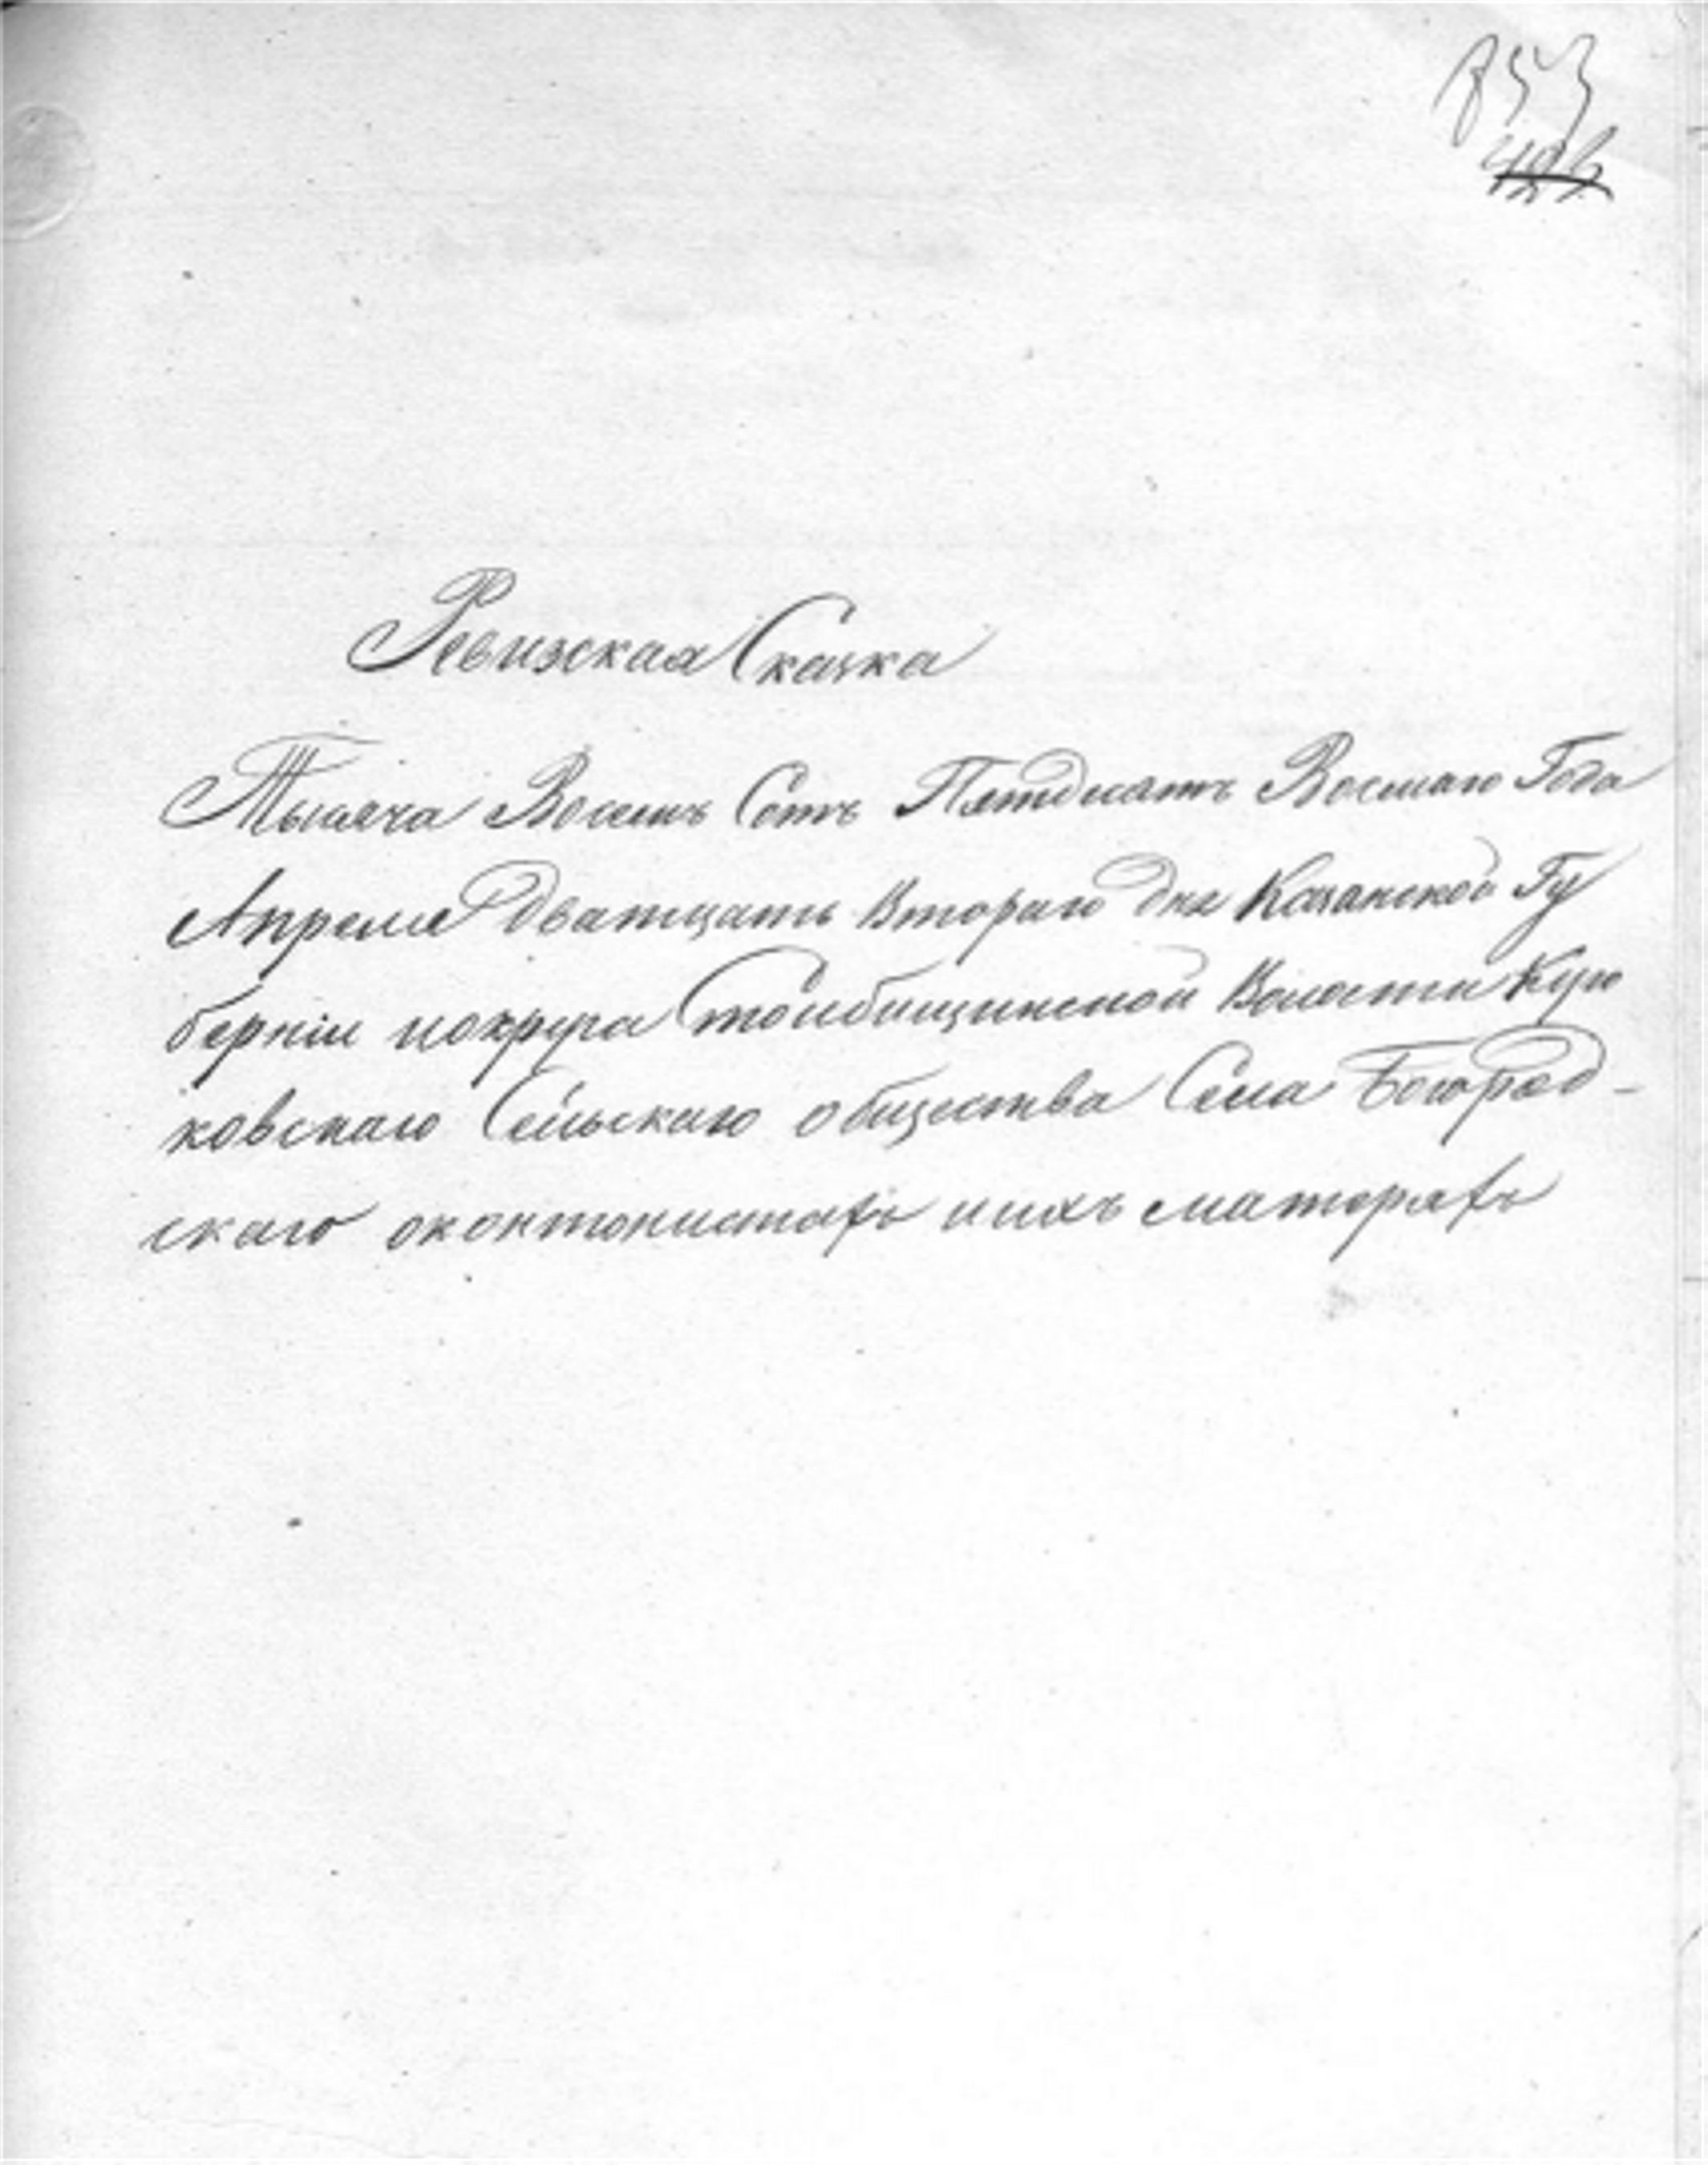 853
Ревизская Сказка
Тысяча Восемь Сотъ Пятдисятъ Восмаго Года
Апреля дватцать Втораго дня Казанской Гу
берніи иокруга Столбищинской Волости
ковскаго Сельскаго общества Села Богород-
скаго оконтонистахъ иихъ матеряхъ